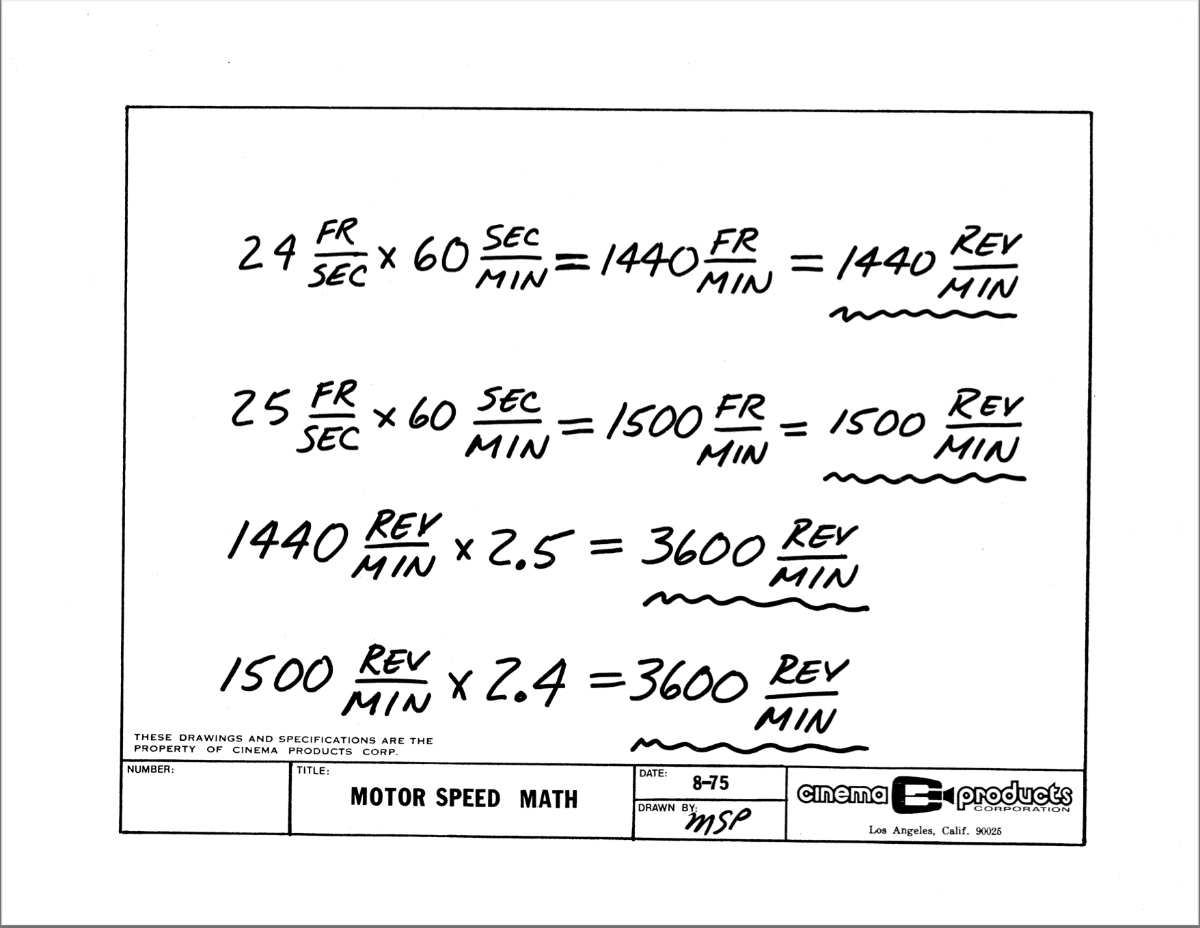 24 FR/SEC x 60 SEC/MIN = 1440 FR/MIN = 1440 REV/MIN
25 FR/SEC x 60 SEC/MIN = 1500 FR/MIN = 1500 REV/MIN
1440 REV/MIN x 2.5 = 3600 REV/MIN
1500 REV/MIN x 2.4 = 3600 REV/MIN
THESE DRAWINGS AND SPECIFICATIONS ARE THE
PROPERTY OF CINEMA PRODUCTS CORP.
NUMBER:
TITLE:
MOTOR SPEED MATH
DATE: 8-75
DRAWN BY: MSP
cinema products
CORPORATION
Los Angeles, Calif. 90025